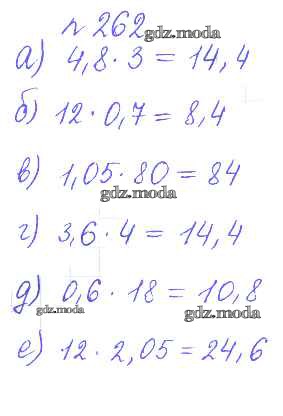 № 262
gdz.moda
а) 4,8 · 3 = 14,4
б) 12 · 0,7 = 8,4
в) 1,05 · 80 = 84
gdz.moda
г) 3,6 · 4 = 14,4
д) 0,6 · 18 = 10,8
gdz.moda
gdz.moda
е) 12 · 2,05 = 24,6